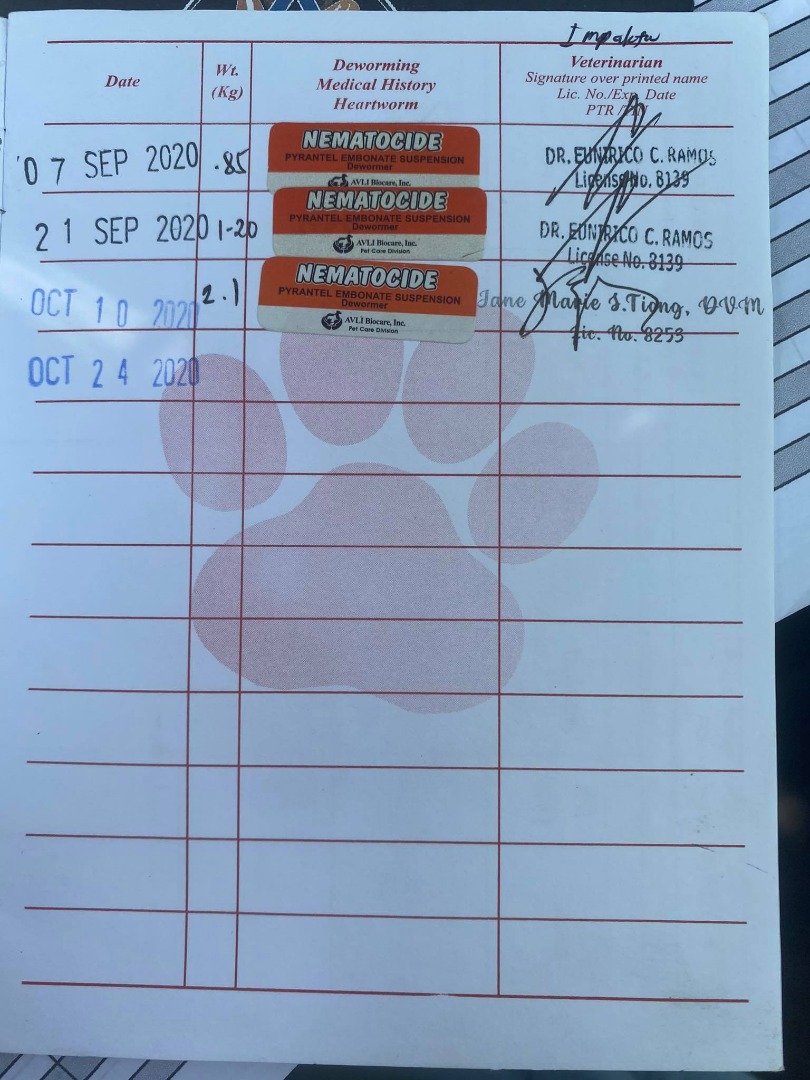 Date
Wt.
(Kg)
Deworming
Medical History
Heartworm
Veterinarian
Signature over printed name
Lic. No./Exp. Date
PTR /
07 SEP 2020
.85
NEMATOCIDE
PYRANTEL EMBONATE SUSPENSION
Dewormer
AVLI Biocare, Inc.
DR. EUNIRICO C. RAMOS
License No. 8139
21 SEP 2020
1.20
NEMATOCIDE
PYRANTEL EMBONATE SUSPENSION
Dewormer
AVLI Biocare, Inc.
Pet Care Division
DR. EUNIRICO C. RAMOS
License No. 8139
OCT 10 2020
2.1
NEMATOCIDE
PYRANTEL EMBONATE SUSPENSION
Dewormer
AVLI Biocare, Inc.
Pet Care Division
Jane Marie S. Tiong, DVM
Lic. No. 8253
OCT 24 2020